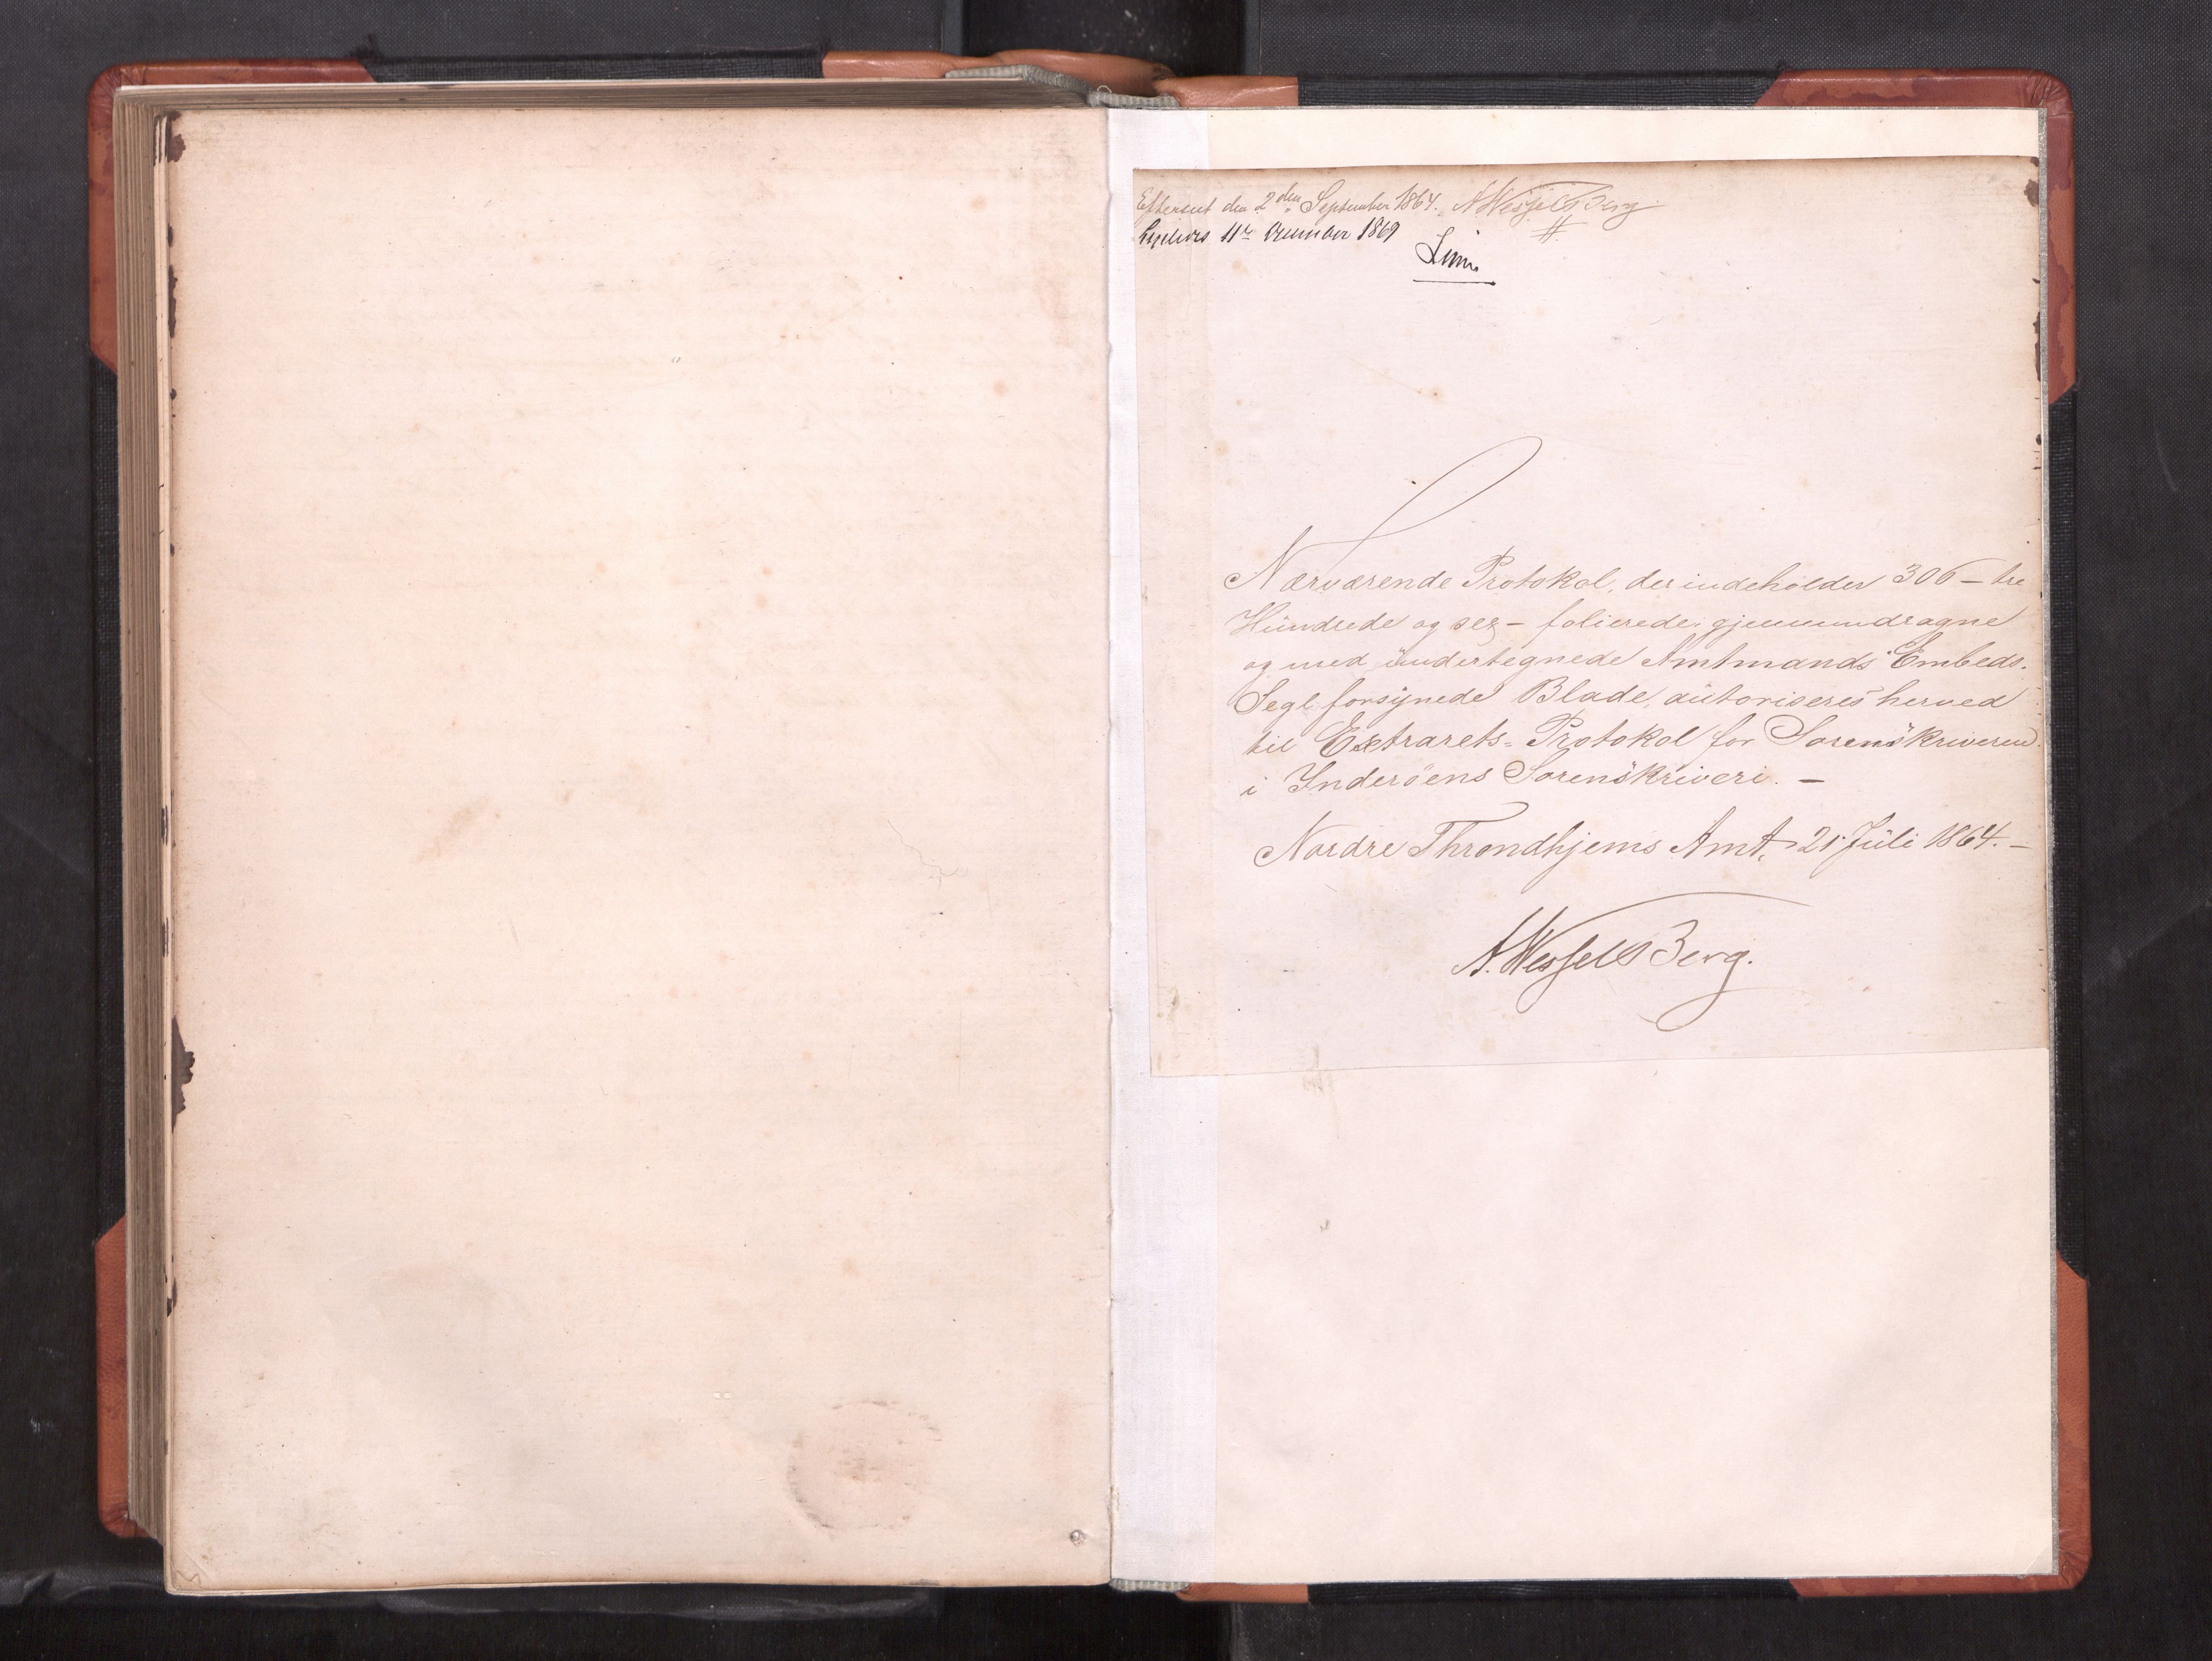 Efterseet den 2den September 1864. A Wessel Berg
11te December 1869
Nærværende Protokol, der indeholder 306 – tre
Hundrede og sex – folierede, gjennemdragne
og med undertegnede Amtmands Embeds-
Segl forsynede Blade, autoriseres herved
til Extrarets-Protokol for Sorenskriveren
i Inderöens Sorenskriveri. –
Nordre Throndhjems Amt, 21 Juli 1864. –
A. Wessel Berg.